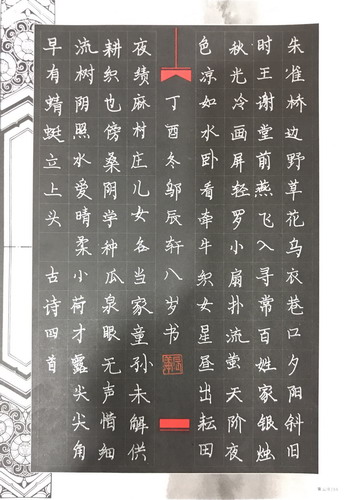 朱雀桥边野草花乌衣巷口夕阳斜旧
时王谢堂前燕飞入寻常百姓家银烛
秋光冷画屏轻罗小扇扑流萤天阶夜
色凉如水卧看牵牛织女星昼出耘田
丁酉冬邬辰轩八岁书
夜绩麻村庄儿女各当家童孙未解供
耕织也傍桑阴学种瓜泉眼无声惜细
流树阴照水爱晴柔小荷才露尖尖角
早有蜻蜓立上头 古诗四首